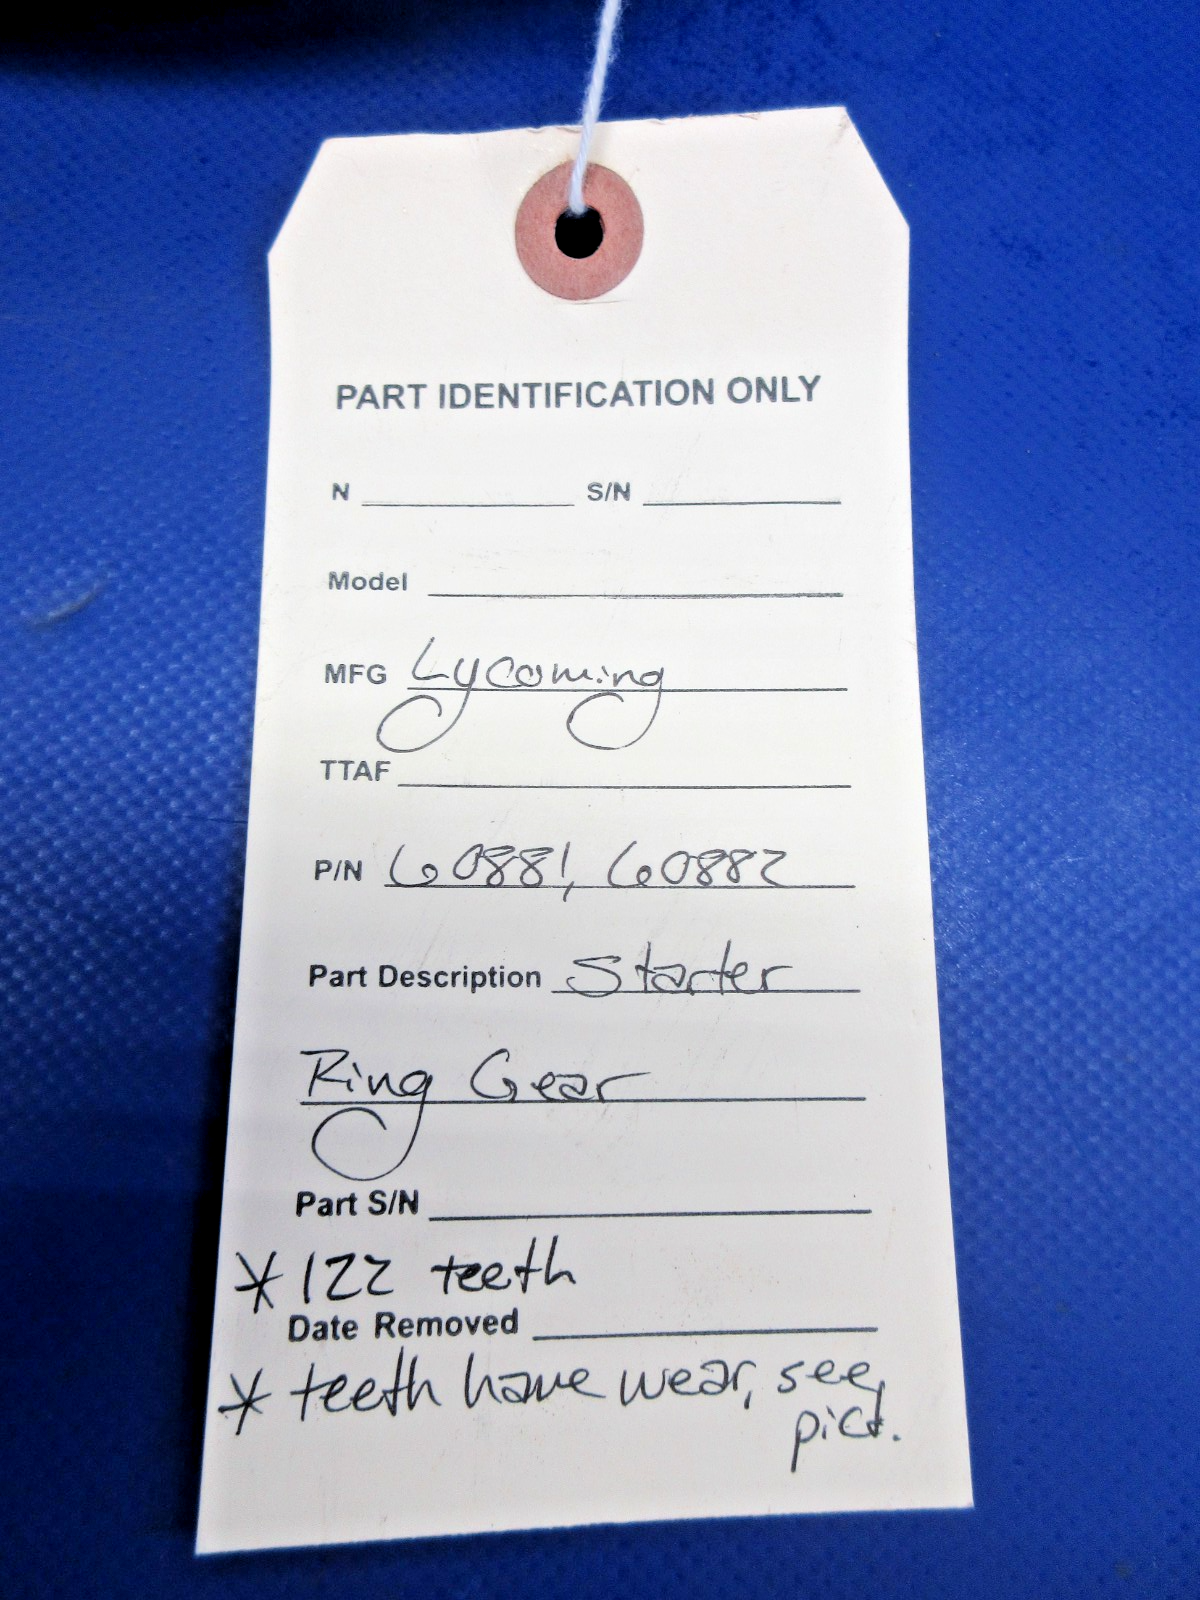 PART IDENTIFICATION ONLY
N S/N
Model
MFG Lycoming
TTAF
P/N 60881, 60882
Part Description Starter
Ring Gear
Part S/N
* 122 teeth
Date Removed
* teeth have wear, see
pics.